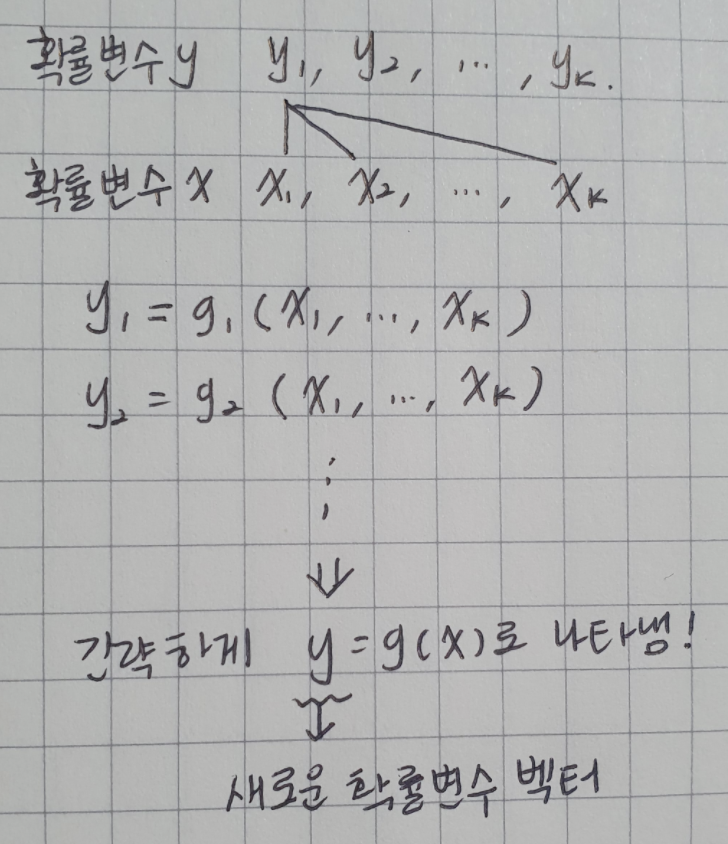 확률변수 y y₁, y₂, ..., yₖ.
확률변수 x x₁, x₂, ..., xₖ
y₁ = g₁ (x₁, ..., xₖ)
y₂ = g₂ (x₁, ..., xₖ)
⋮
⇓
간략하게 y = g(x)로 나타냄!
↓
새로운 확률변수 벡터